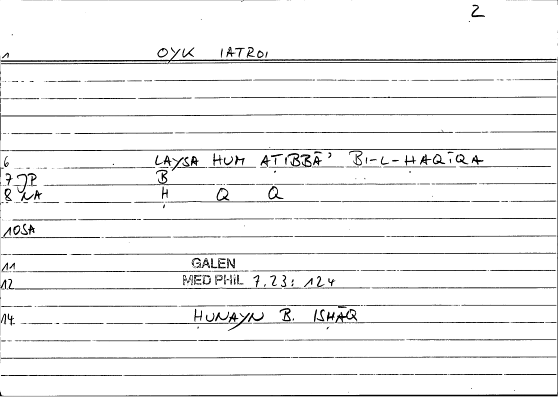 2
1 OYK IATROI
6 LAYSA HUM AṬIBBĀʾ BI-L-ḤAQĪQA
7 JP B
8 NA Ḥ Q Q
10SA
11 GALEN
12 MED PHIL 7,23: 124
14 ḤUNAYN B. ISḤĀQ